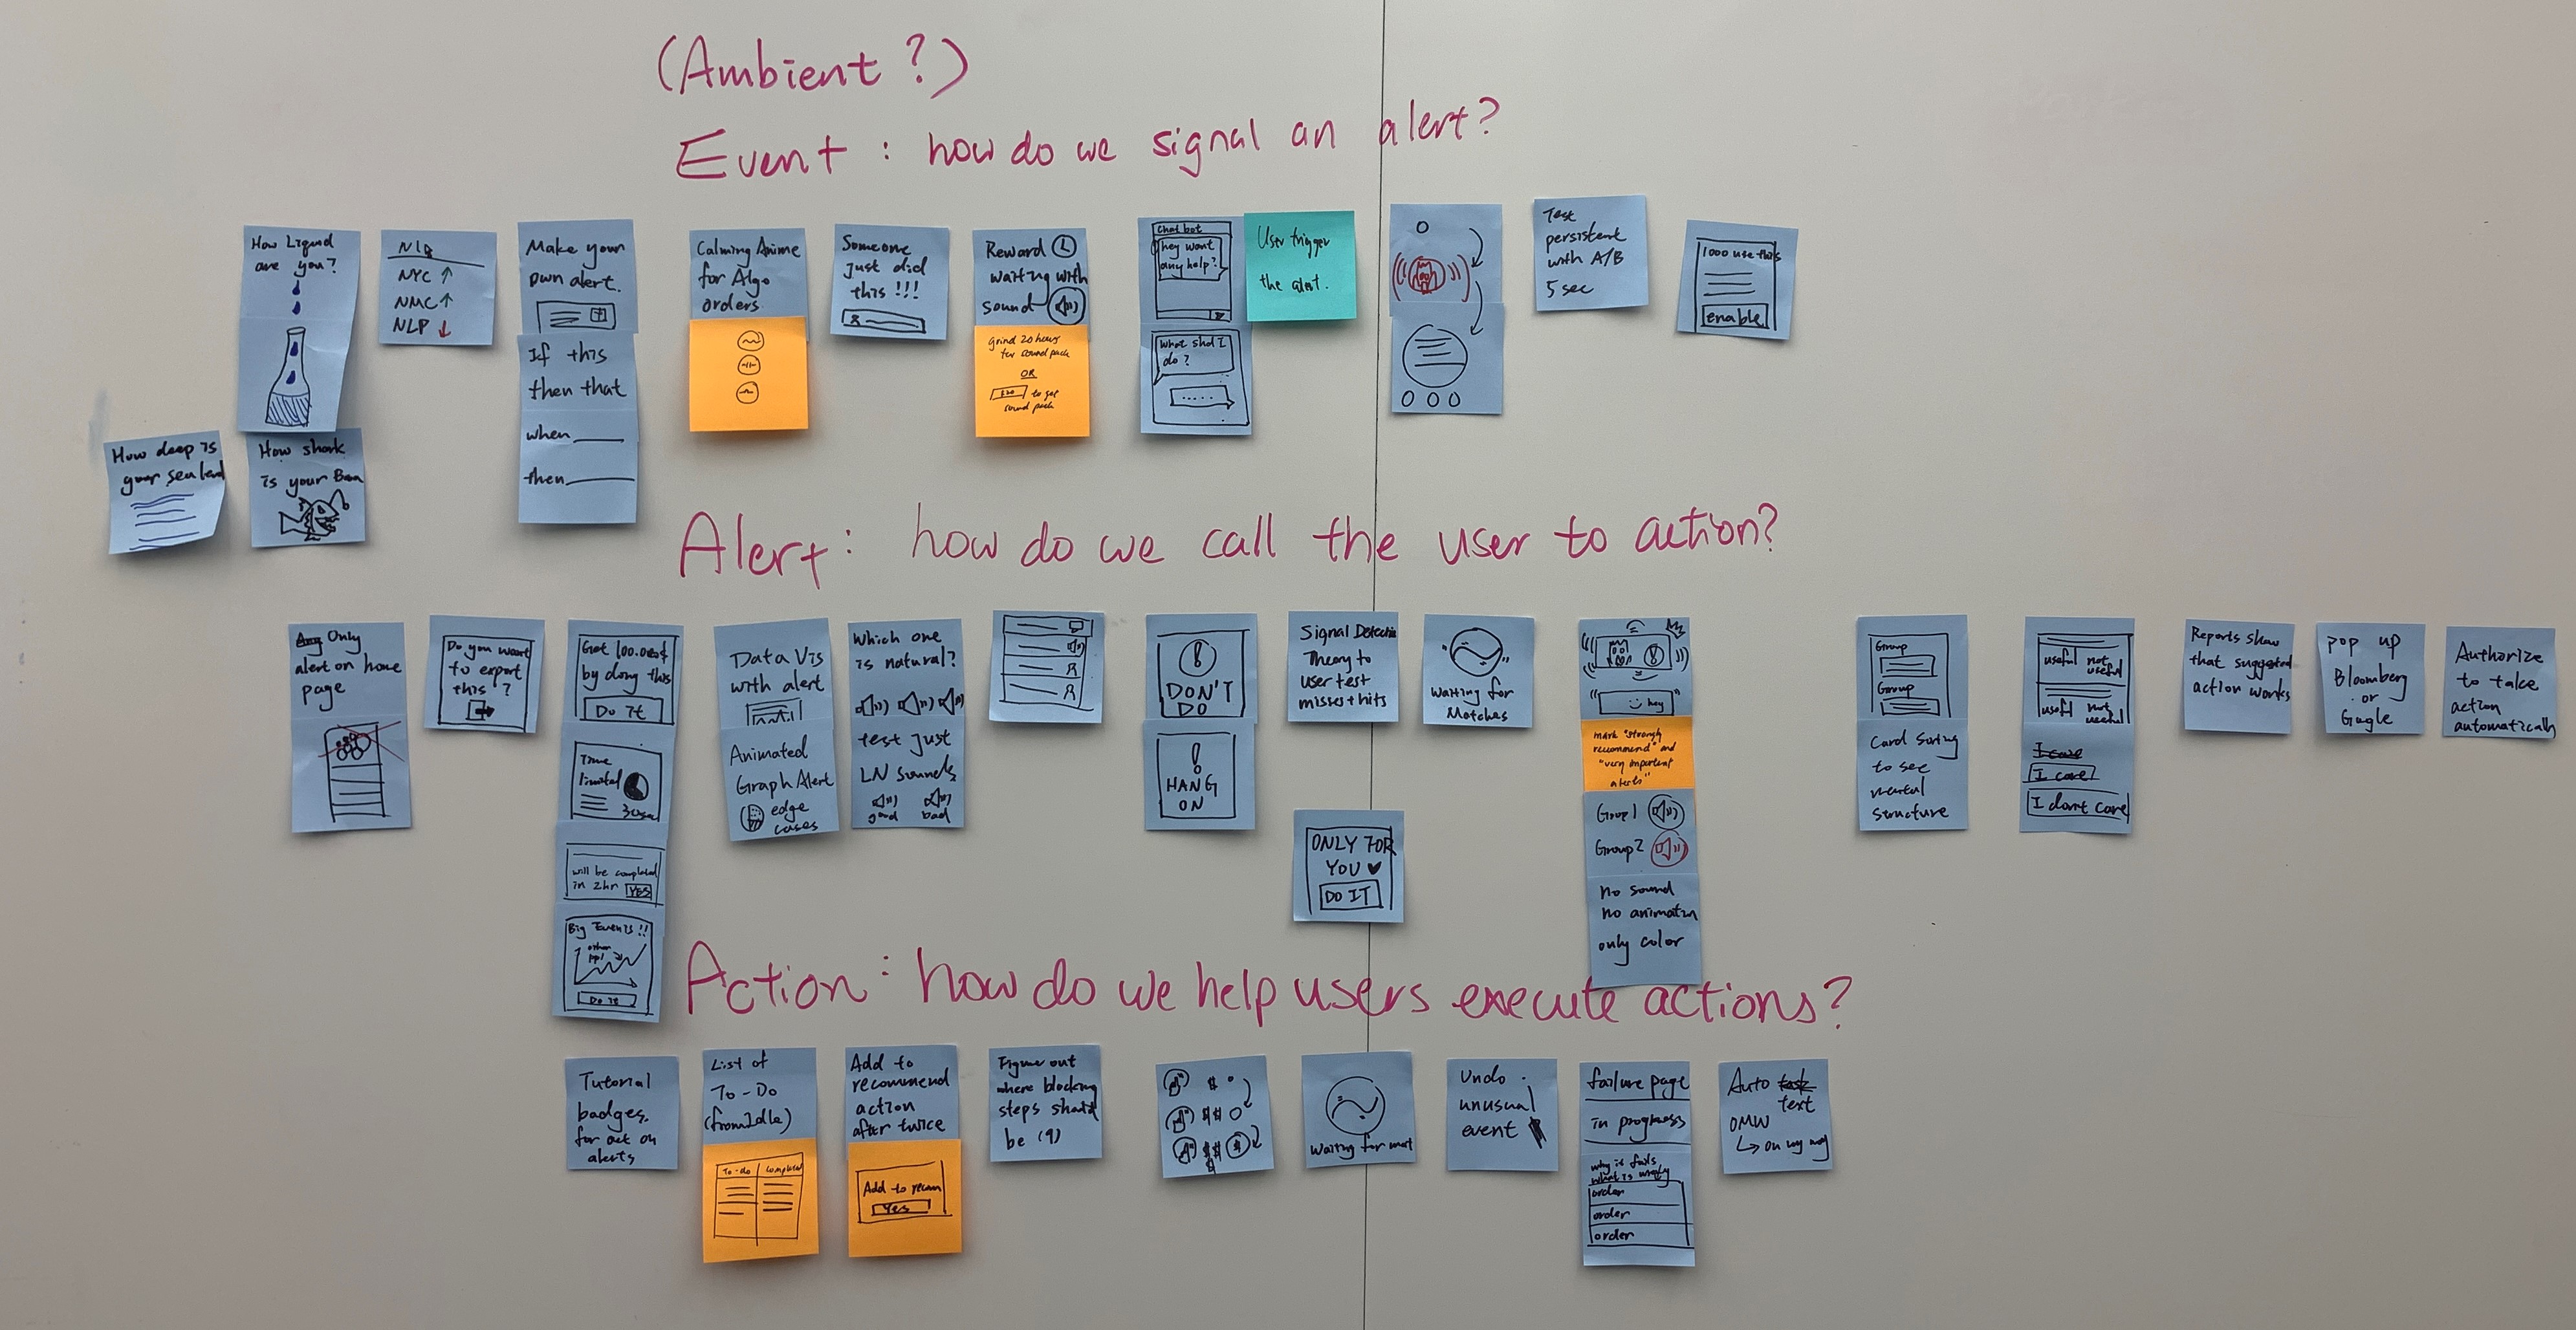 (Ambient?)
Event: how do we signal an alert?
How Liquid
are you?
NYC ↑
NMC ↑
NLP ↓
Make your
own alert.
If this
then that
when
then
Calming Anime
for Algo
orders
Someone
just did
this !!!
Reward L
waiting with
sound
grind 20 hours
for sound pack
OR
to get
sound pack
Chat bot
hey want
any help?
What shd I
do?
.....
User trigger
the alert.
Test
persistent
with A/B
5 sec
1000 use this
enable
How deep is
your sea
How shark
is your
Alert: how do we call the user to action?
Only
alert on home
page
Do you want
to export
this?
Get 100.000$
by doing this
Do It
Time
limited
will be completed
in 2hr YES
Big Events!!
other
ppl
Do It
Data Vis
with alert
Animated
Graph Alert
edge
cases
Which one
is natural?
test just
LN sounds
good bad
!
DON'T
DO
!
HANG
ON
Signal Detectio
Theory to
user test
misses + hits
ONLY FOR
YOU ♥
DO IT
Waiting for
Matches
!
hey
mark "strongly
recommend" and
"very important
alerts"
Group1
Group2
no sound
no animation
only color
Group
Group
Card Sorting
to see
mental
structure
useful not useful
useful not useful
I care
I care
I dont care
Reports show
that suggested
action works
Pop up
Bloomberg
or
Gugle
Authorize
to take
action
automatically
Action: how do we help users execute actions?
Tutorial
badges.
for act on
alerts
List of
To-Do
(from Idle)
To-do Completed
Add to
recommend
action
after twice
Add to recom
Yes
Figure out
where blocking
steps should
be (9)
$
$$
$$ $
$
Waiting for
Undo
unusual
event
failure page
in progress
why it fails
what is wrong
order
order
order
Auto task
text
OMW
↳ on my way